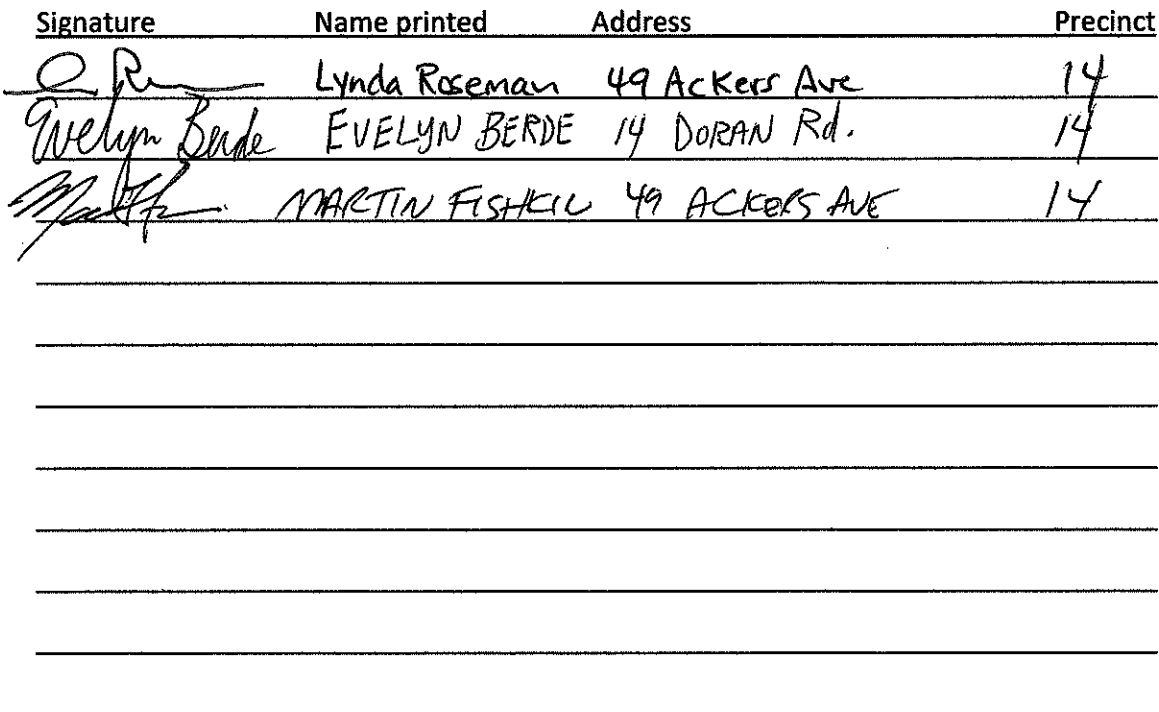 Signature Name printed Address Precinct
Lynda Roseman 49 Ackers Ave 14
Evelyn Berde EVELYN BERDE 14 DORAN Rd. 14
MARTIN 49 ACKERS AVE 14